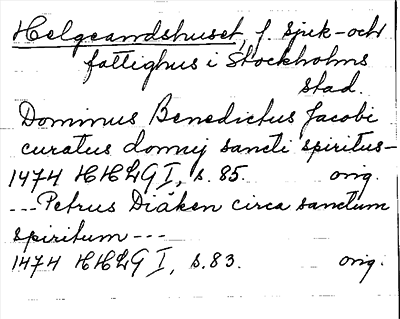 Helgeandshuset, f. sjuk- och
fattighus i Stockholms
stad.
Dominus Benedictus Jacobi
curatus domuj sancti spiritus -
1474 HHLG I, s. 85. orig.
--- Petrus Diäken circa sanctum
spiritum ---
1474 HHLG I, s. 83. orig.